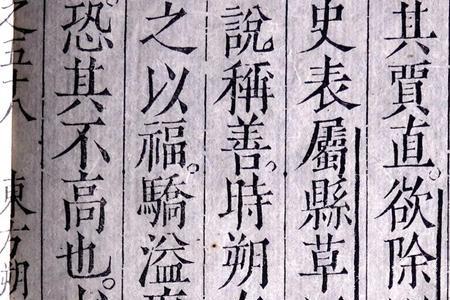 其賈直。欲除
史表屬縣草
說稱善。時朔
之以福。驕溢
恐其不高也。
之五十八 東方朔